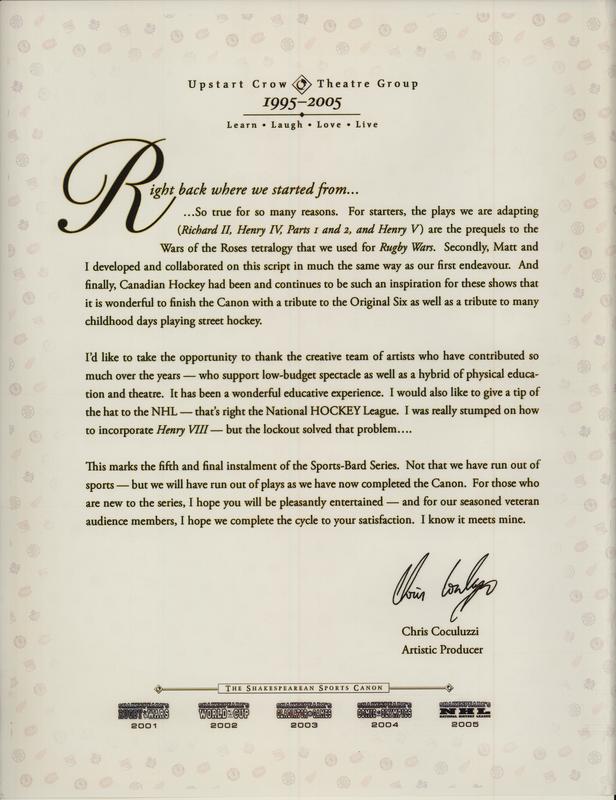 Upstart Crow Theatre Group
1995–2005
Learn • Laugh • Love • Live
Right back where we started from...
...So true for so many reasons. For starters, the plays we are adapting
(Richard II, Henry IV, Parts 1 and 2, and Henry V) are the prequels to the
Wars of the Roses tetralogy that we used for Rugby Wars. Secondly, Matt and
I developed and collaborated on this script in much the same way as our first endeavour. And
finally, Canadian Hockey had been and continues to be such an inspiration for these shows that
it is wonderful to finish the Canon with a tribute to the Original Six as well as a tribute to many
childhood days playing street hockey.
I'd like to take the opportunity to thank the creative team of artists who have contributed so
much over the years — who support low-budget spectacle as well as a hybrid of physical educa-
tion and theatre. It has been a wonderful educative experience. I would also like to give a tip of
the hat to the NHL — that's right the National HOCKEY League. I was really stumped on how
to incorporate Henry VIII — but the lockout solved that problem....
This marks the fifth and final instalment of the Sports-Bard Series. Not that we have run out of
sports — but we will have run out of plays as we have now completed the Canon. For those who
are new to the series, I hope you will be pleasantly entertained — and for our seasoned veteran
audience members, I hope we complete the cycle to your satisfaction. I know it meets mine.
Chris Coculuzzi
Chris Coculuzzi
Artistic Producer
The Shakespearean Sports Canon
RUGBY WARS WORLD CUP NHL
2001 2002 2003 2004 2005